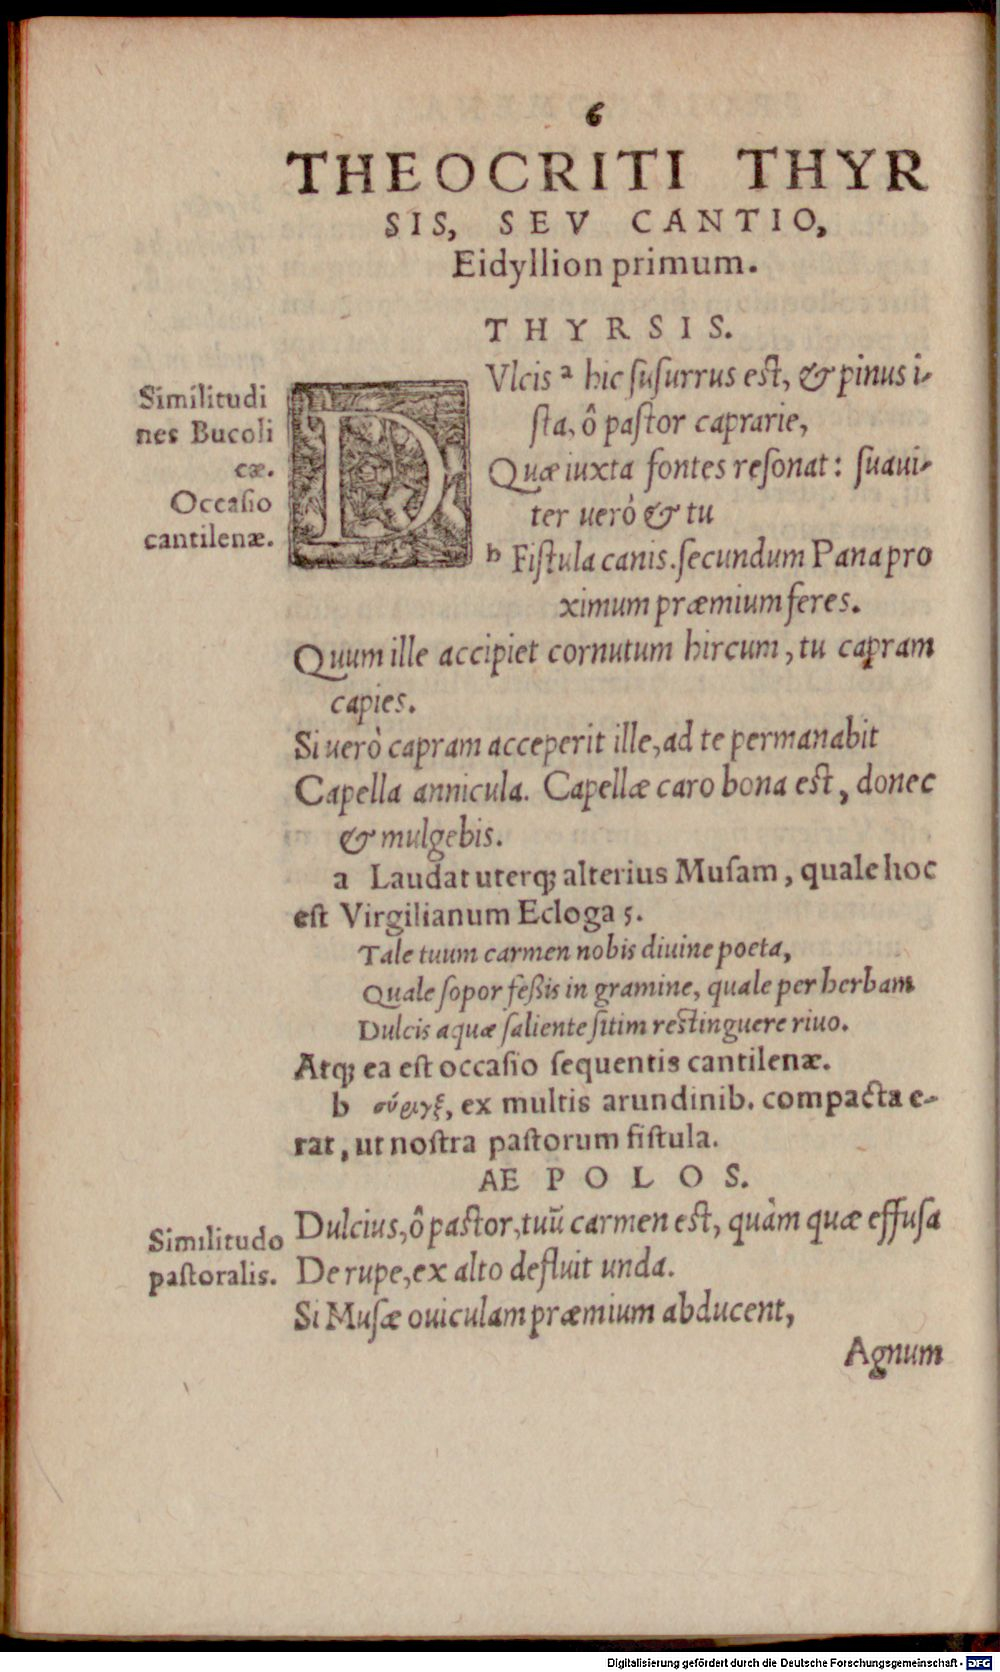 6
THEOCRITI THYR
SIS, SEV CANTIO,
Eidyllion primum.
THYRSIS.
Similitudi
nes Bucoli
cæ.
Occasio
cantilenæ.
DVlcis a hic susurrus est, & pinus i-
sta, ô pastor caprarie,
Quæ iuxta fontes resonat: suaui-
ter uerò & tu
b Fistula canis. secundum Pana pro
ximum præmium feres.
Quum ille accipiet cornutum hircum, tu capram
capies.
Si uerò capram acceperit ille, ad te permanabit
Capella annicula. Capellæ caro bona est, donec
& mulgebis.
a Laudat uterq; alterius Musam, quale hoc
est Virgilianum Ecloga 5.
Tale tuum carmen nobis diuine poeta,
Quale sopor feßis in gramine, quale per herbam
Dulcis aquæ saliente sitim restinguere riuo.
Atq; ea est occasio sequentis cantilenæ.
b σύριγξ, ex multis arundinib. compacta e-
rat, ut nostra pastorum fistula.
AEPOLOS.
Similitudo
pastoralis.
Dulcius, ô pastor, tuū carmen est, quàm quæ effusa
De rupe, ex alto defluit unda.
Si Musæ ouiculam præmium abducent,
Agnum
Digitalisierung gefördert durch die Deutsche Forschungsgemeinschaft - DFG